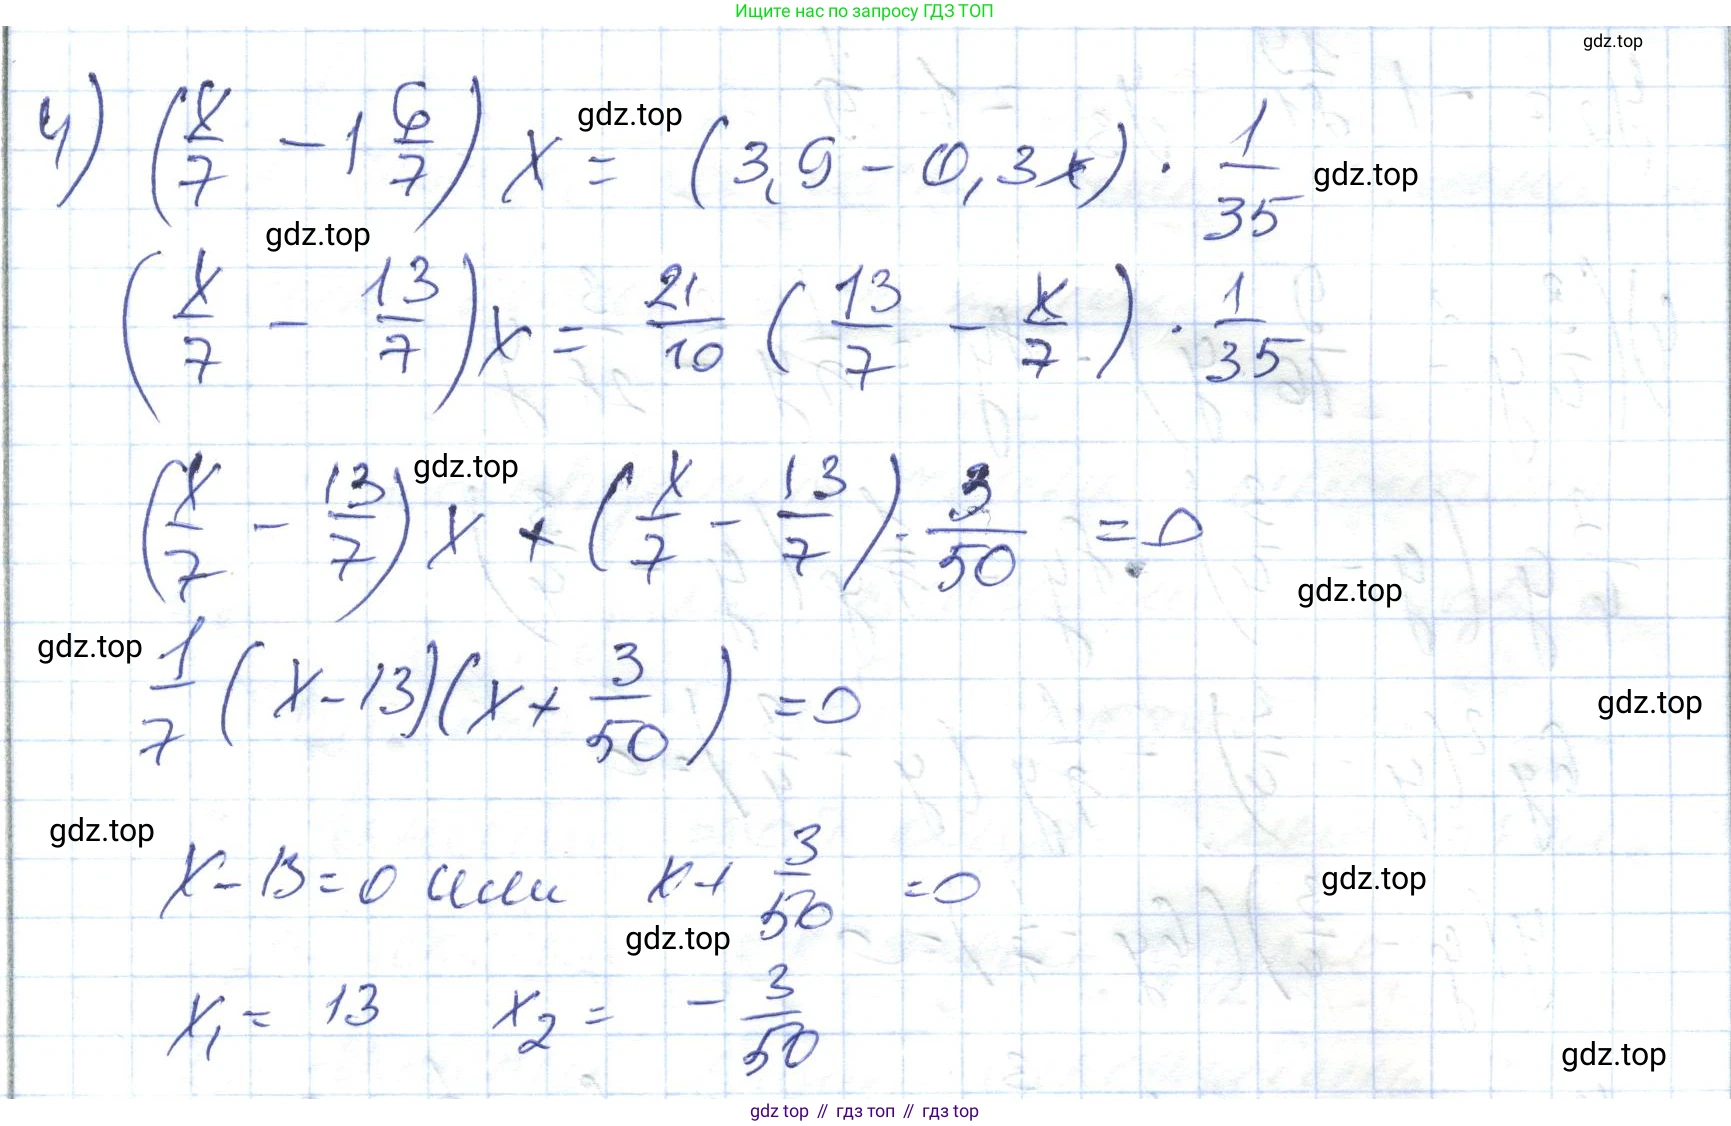 Ищите нас по запросу ГДЗ ТОП
gdz.top
4) (x/7 - 1 6/7) x = (3,9 - 0,3x) · 1/35
gdz.top
gdz.top
gdz.top
(x/7 - 13/7) x = 21/10 (13/7 - x/7) · 1/35
(x/7 - 13/7) x + (x/7 - 13/7) · 3/50 = 0
gdz.top
gdz.top
gdz.top
1/7 (x - 13)(x + 3/50) = 0
gdz.top
gdz.top
x - 13 = 0 или x + 3/50 = 0
gdz.top
gdz.top
x₁ = 13 x₂ = - 3/50
gdz.top
gdz top // гдз топ // gdz top